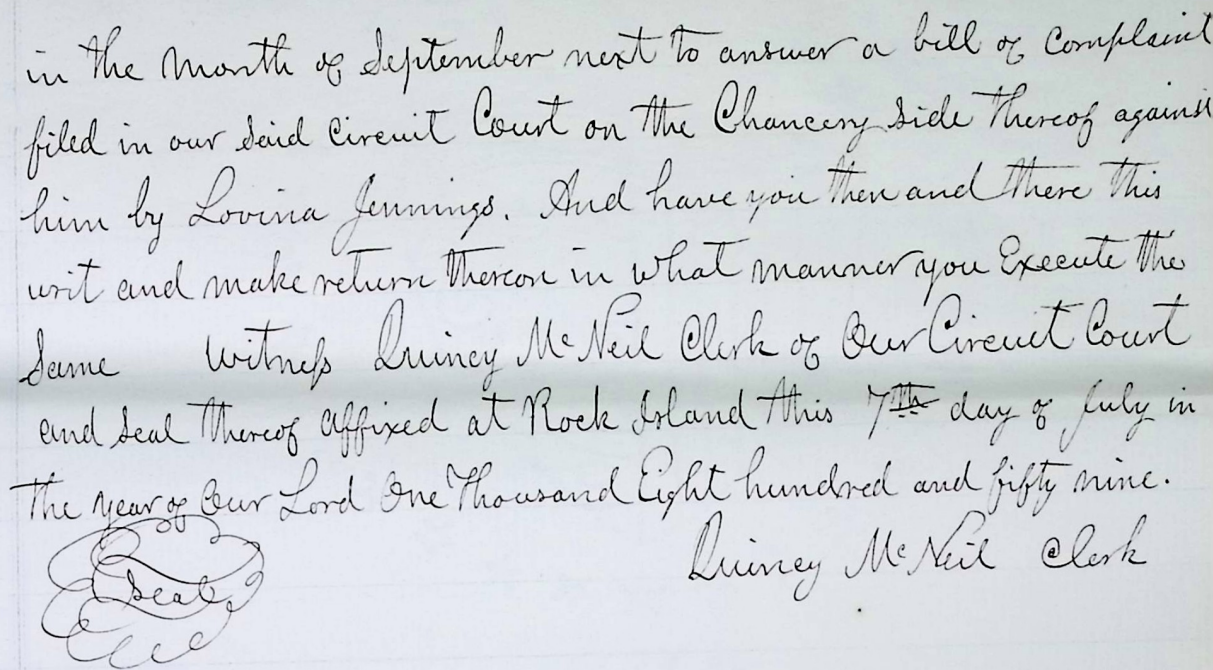 in the month of September next to answer a bill of Complaint
filed in our said Circuit Court on the Chancery side thereof against
him by Lovina Jennings. And have you then and there this
writ and make return thereon in what manner you Execute the
Same Witness Quincy McNeil Clerk of Our Circuit Court
and seal thereof affixed at Rock Island this 7th day of July in
the year of Our Lord One Thousand Eight hundred and fifty nine.
Quincy McNeil Clerk
Seal